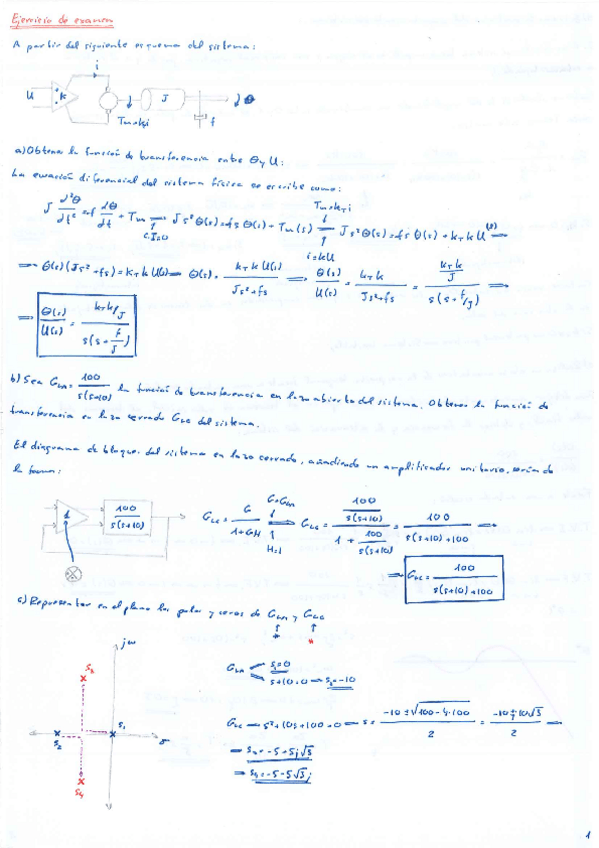 Ejercicio de examen
A partir del siguiente esquema del sistema:
i
U k J θ
Tm=kᵢi f
a) Obtener la función de transferencia entre θ y U:
La ecuación diferencial del sistema física se escribe como:
Tm=k_T i
J d²θ/dt² = f dθ/dt + Tm ⟹ Js²θ(s) = fs θ(s) + Tm(s) ⟹ Js²θ(s) = fs θ(s) + k_T k U(s) ⟹
C.I=0
i=kU
⟹ θ(s)(Js²+fs) = k_T k U(s) ⟹ θ(s) = k_T k U(s)/(Js²+fs) ⟹ θ(s)/U(s) = k_T k/(Js²+fs) = (k_T k/J)/(s(s+f/J)) ⟹
⟹ θ(s)/U(s) = (k_T k/J)/(s(s+f/J))
b) Sea G_LA = 100/(s(s+10)) la función de transferencia en lazo abierto del sistema. Obtener la función de
transferencia en lazo cerrado G_LC del sistema.
El diagrama de bloques del sistema en lazo cerrado, añadiendo un amplificador unitario, sería de
la forma:
1 100/(s(s+10))
G_LC = G/(1+GH) ⟹ G_LC = (100/(s(s+10)))/(1 + 100/(s(s+10))) = 100/(s(s+10)+100) ⟹
G=G_LA
H=1
⟹ G_LC = 100/(s(s+10)+100)
c) Representar en el plano los polos y ceros de G_LA y G_LC
* *
jω
S₃
S₂ S₁ σ
S₄
G_LA s₁=0
s+10=0 → s₂=-10
G_LC → s²+10s+100=0 → s = (-10 ± √(100-4·100))/2 = (-10 ± j10√3)/2 ⟹
→ s₃=-5+5j√3
→ s₄=-5-5√3j
1